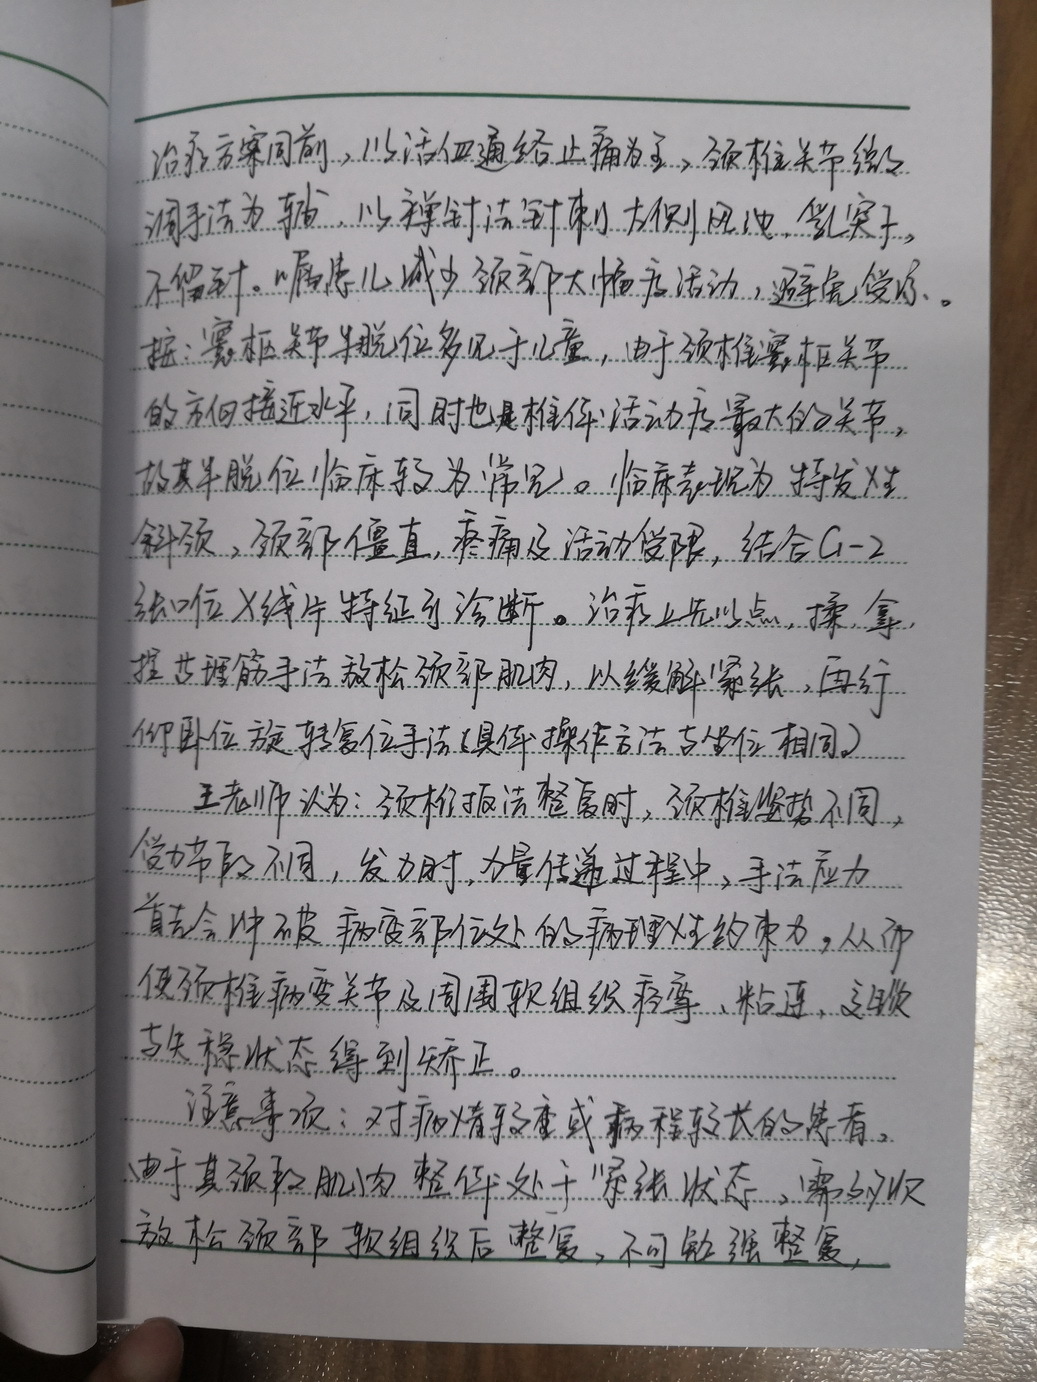 治疗方案同前，以活血通络止痛为主，颈椎关节微
调手法为辅，以禅针法针刺大侧风池，乳突下，
不留针。嘱患儿减少颈部大幅度活动，避免受凉。
按：寰枢关节半脱位多见于儿童，由于颈椎寰枢关节
的方向接近水平，同时也是椎体活动度最大的关节，
故其半脱位临床较为常见。临床表现为特发性
斜颈，颈部僵直，疼痛及活动受限，结合C1-2
张口位X线片特征可诊断。治疗上先以点、揉、拿、
捏等理筋手法放松颈部肌肉，以缓解紧张，再行
仰卧位旋转复位手法（具体操作方法与坐位相同。）
王老师认为：颈椎扳法整复时，颈椎姿势不同，
受力节段不同，发力时，力量传递过程中，手法应力
首先会冲破病变部位处的病理性约束力，从而
使颈椎病变关节及周围软组织痉挛、粘连、交锁
与失稳状态得到矫正。
注意事项：对病情较重或病程较长的患者，
由于其颈部肌肉整体处于紧张状态，需多次
放松颈部软组织后整复，不可勉强整复，